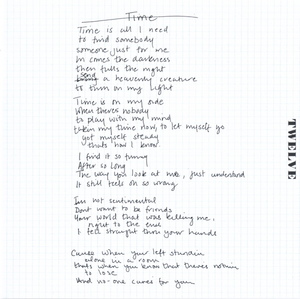 Time
Time is all I need
to find somebody
someone just for me
In comes the darkness
then falls the night
send a heavenly creature
to turn on my light
Time is on my side
When theres nobody
to play with my mind
takin my time now, to let myself go
got myself steady
thats how I know
I find it so funny
After so long
The way you look at me, just understand
It still feels oh so wrong
Im not sentimental
Dont want to be friends
Your world that was killing me,
right to the end
I fell straight thru your hands
Cause when your left standin
alone in a room
thats when you know that theres nothin
to lose
And no-one cares for you
TWELVE